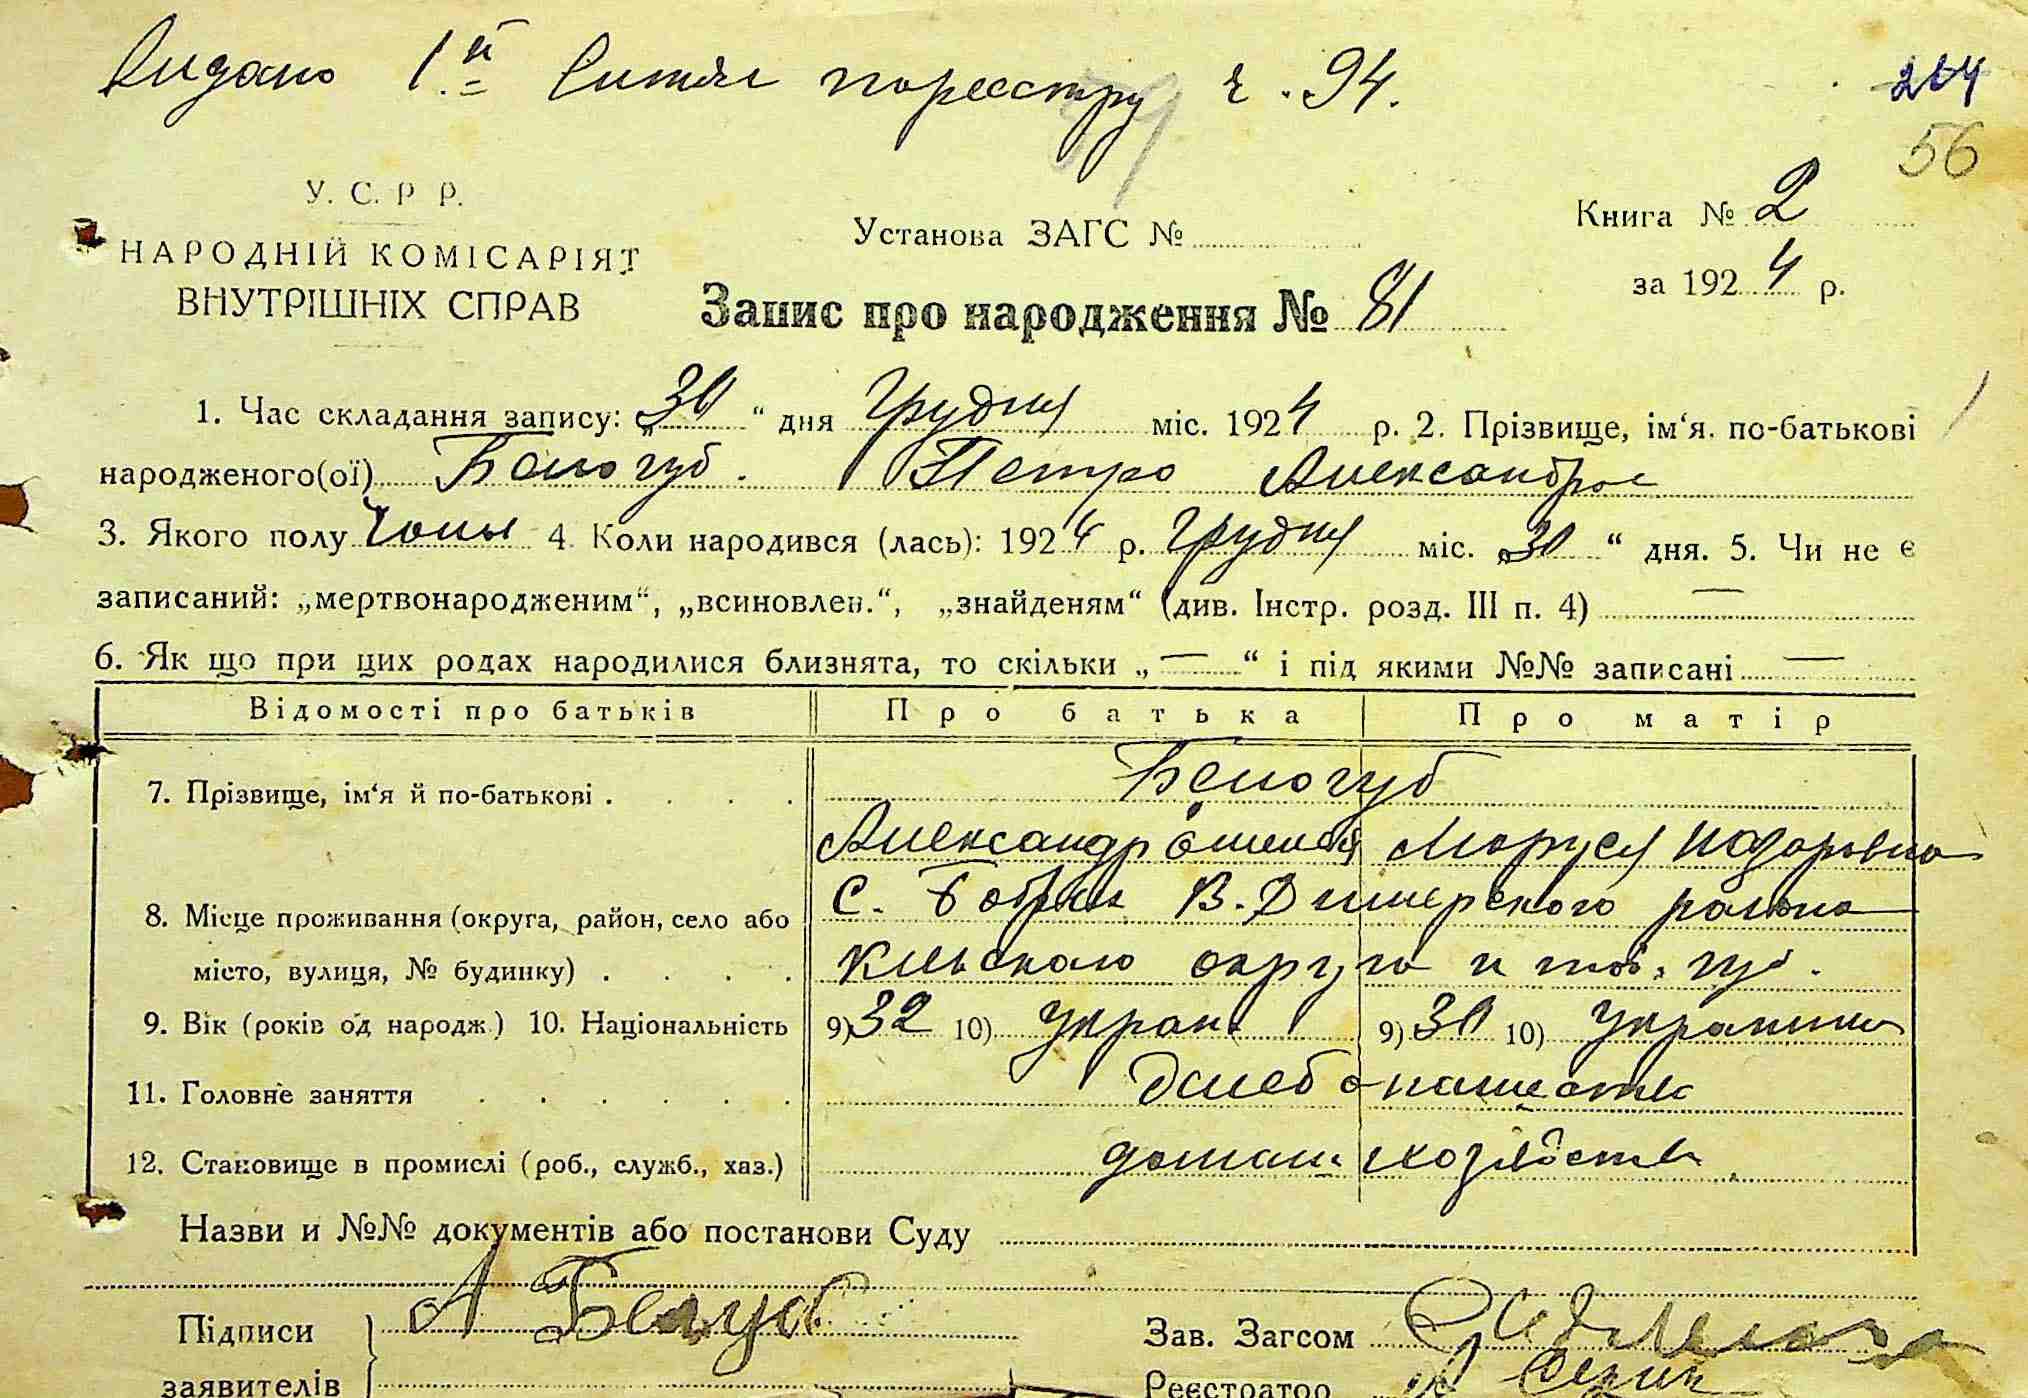 Видано 1й Витяг пореєстру ч. 94.
264
56
У. С. Р Р.
НАРОДНІЙ КОМІСАРІЯТ
ВНУТРІШНІХ СПРАВ
Установа ЗАГС №
Книга № 2
за 1924 р.
Запис про народження № 81
1. Час складання запису: „30“ дня Грудня міс. 1924 р. 2. Прізвище, ім‘я. по-батькові
народженого(ої) Белогуб. Петро Александров
3. Якого полу 4. Коли народився (лась): 1924 р. Грудня міс. „30“ дня. 5. Чи не є
записаний: „мертвонародженим“, „всиновлен.“, „знайденям“ (див. Інстр. розд. III п. 4) —
6. Як що при цих родах народилися близнята, то скільки „—“ і під якими №№ записані —
Відомості про батьків Про батька Про матір
7. Прізвище, ім‘я й по-батькові . . . . Белогуб
Александр Маруся
8. Місце проживання (округа, район, село або С. В. Димерского района
місто, вулиця, № будинку) . . . . Киевского округа и губ.
9. Вік (років од народж.) 10. Національність 9) 32 10) Украин 9) 30 10) Украинка
11. Головне заняття . . . . . . хлебопашество
12. Становище в промислі (роб., служб., хаз.) домаш. хозяйство
Назви и №№ документів або постанови Суду
Підписи А Белогуб
Зав. Загсом
заявителів
Реєстратор